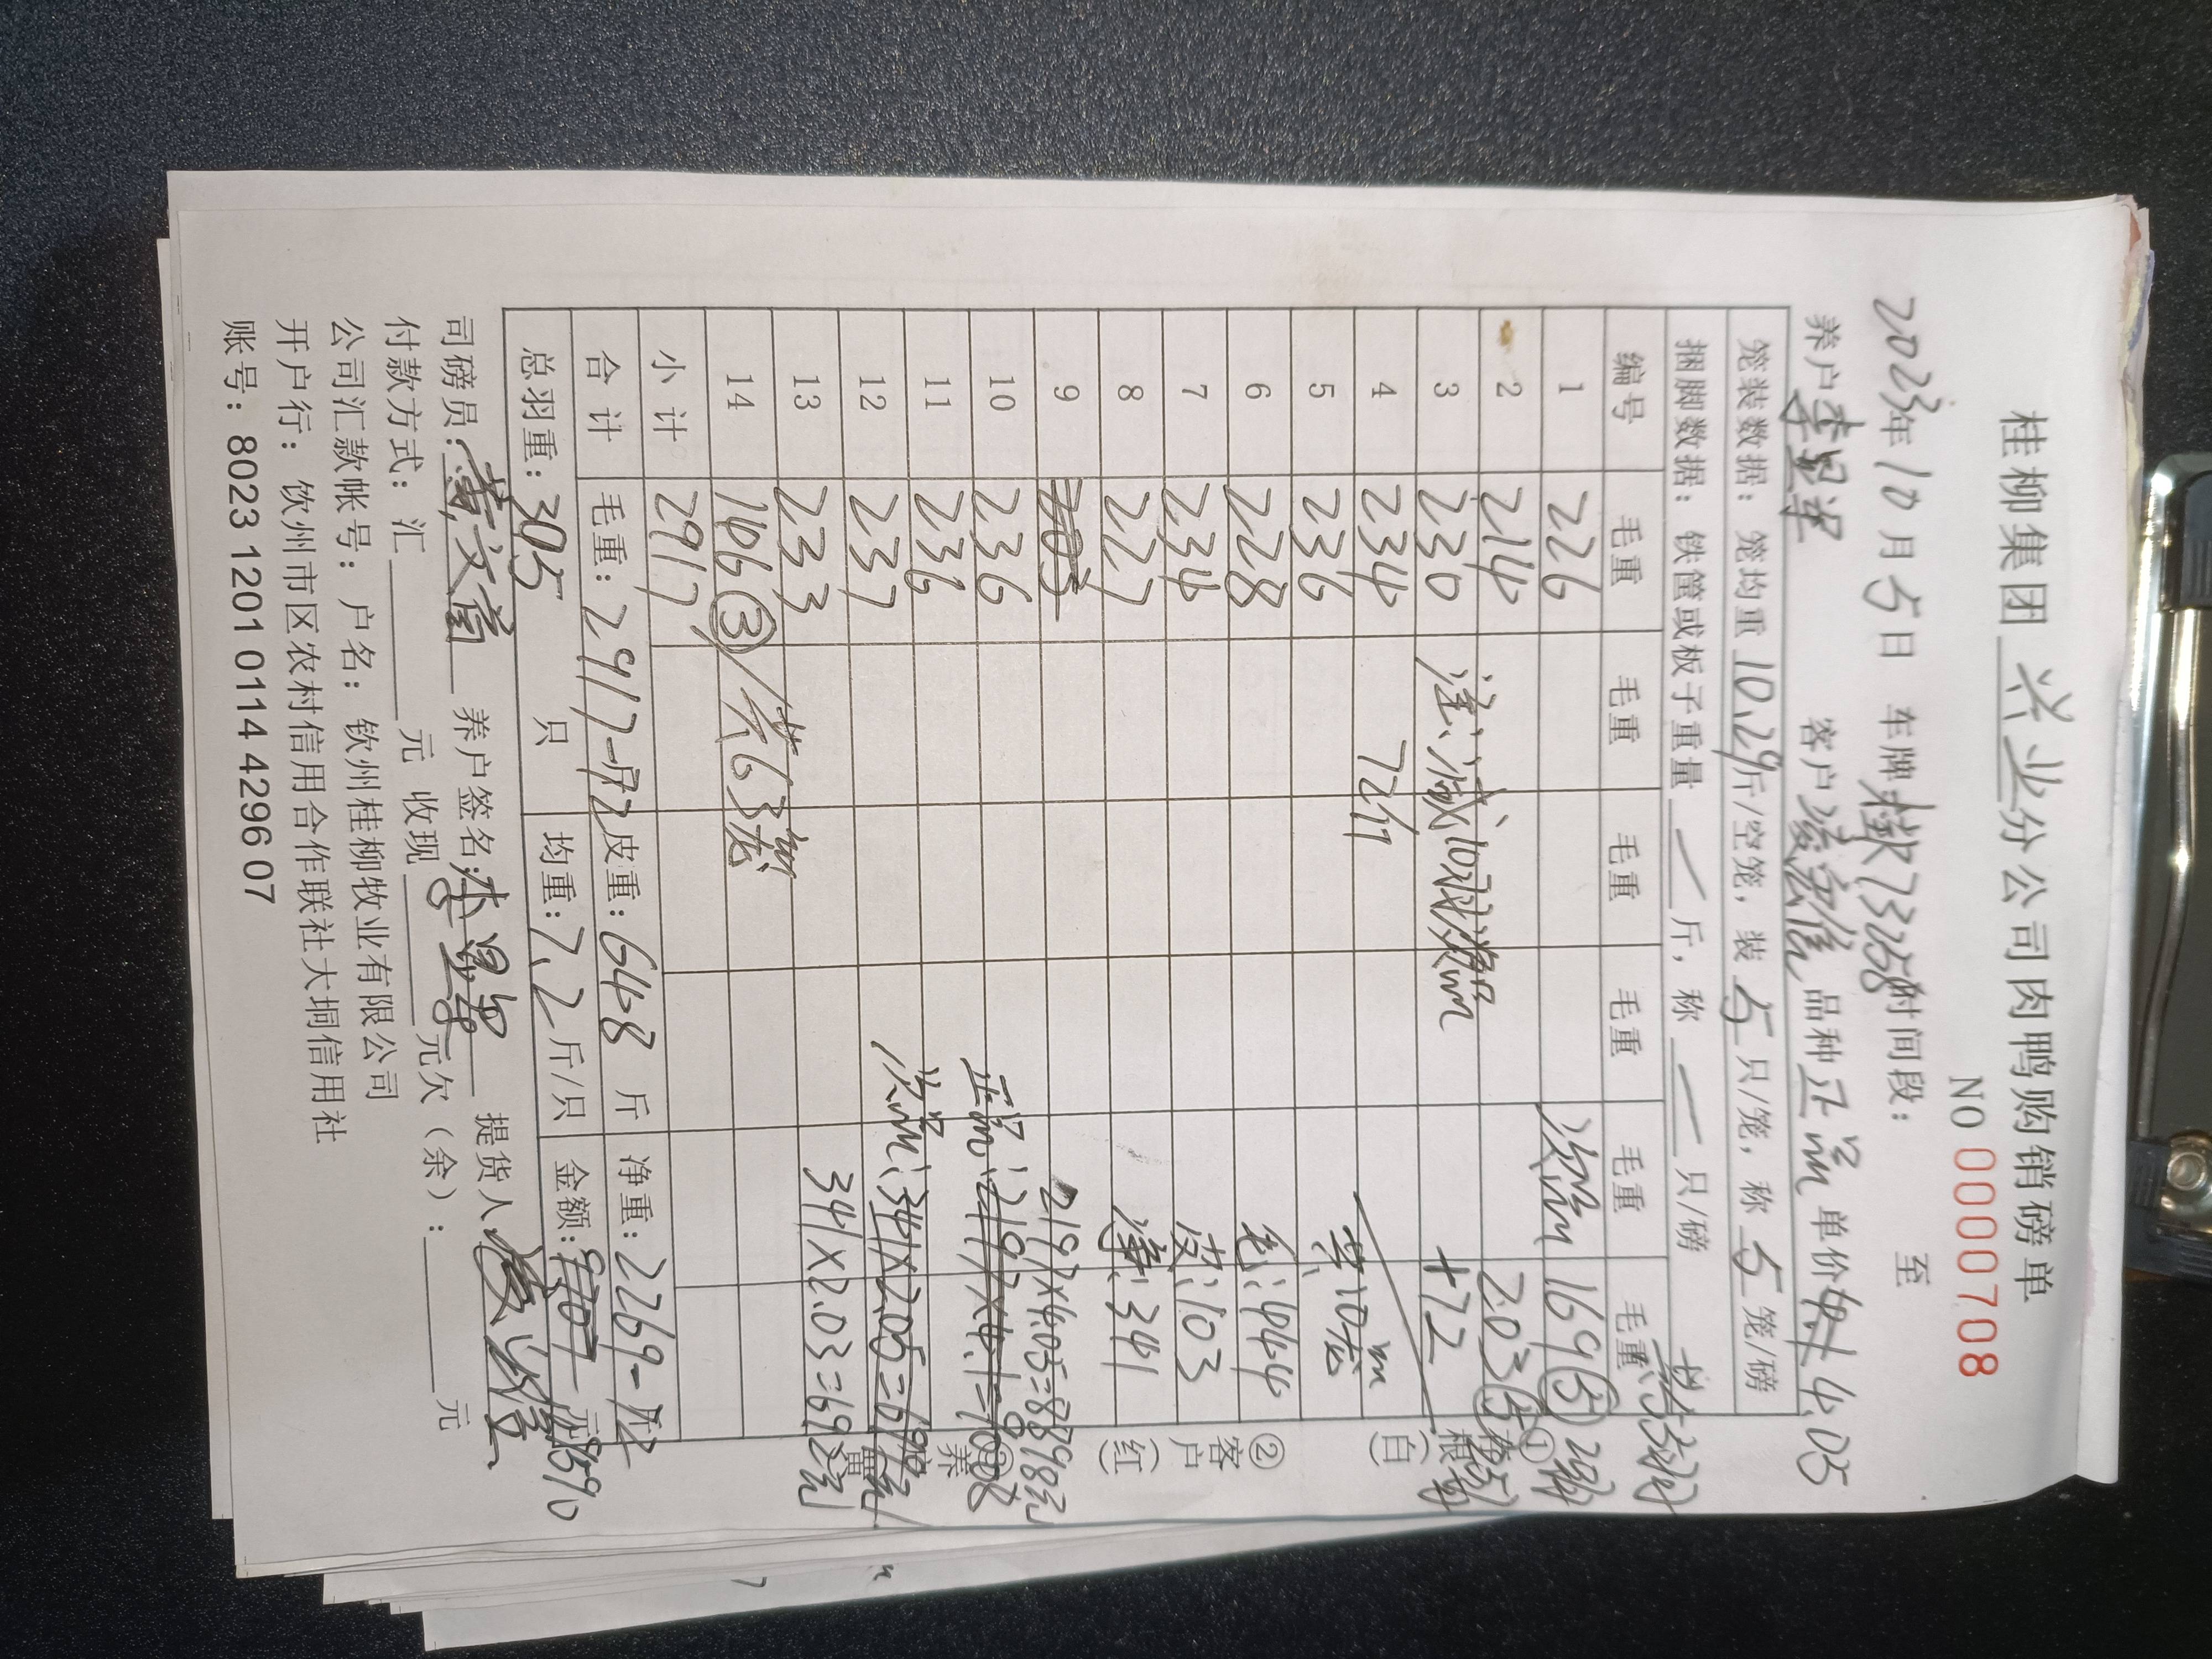 桂柳集团 兴业 分公司肉鸭购销磅单
NO 0000708
2023年10月5日 车牌 桂K73258 时间段: 至
养户 客户 凌宏信 品种 正品 单价 4.05
笼装数据: 笼均重 10.29 斤/空笼, 装 5 只/笼, 称 5 笼/磅
捆脚数据: 铁筐或板子重量 / 斤, 称 / 只/磅
编号 毛重 毛重 毛重 毛重 毛重 毛重
1 226 次品 169 ⑤
2 214 203 ⑤
3 230 +72
4 234 72斤
5 236 共10笼
6 228 毛:444
7 234 皮:103
8 227 净:341
9 203 2197×4.05=8898元
10 236 正品:2197×4.1=
11 236
12 237 次品:341×2.05=
13 233 341×2.03=692元
14 146 ③ 共63笼
小计 2917
合计 毛重: 2917-72 皮重: 648 斤 净重: 2269-72
总羽重: 305 只 均重: 7.2 斤/只 金额: 元
①存根(白)
②客户(红)
司磅员: 养户签名: 提货人
付款方式: 汇 元 收现 元欠(余): 元
公司汇款帐号: 户名: 钦州桂柳牧业有限公司
开户行: 钦州市区农村信用合作联社大垌信用社
账号: 8023 1201 0114 4296 07